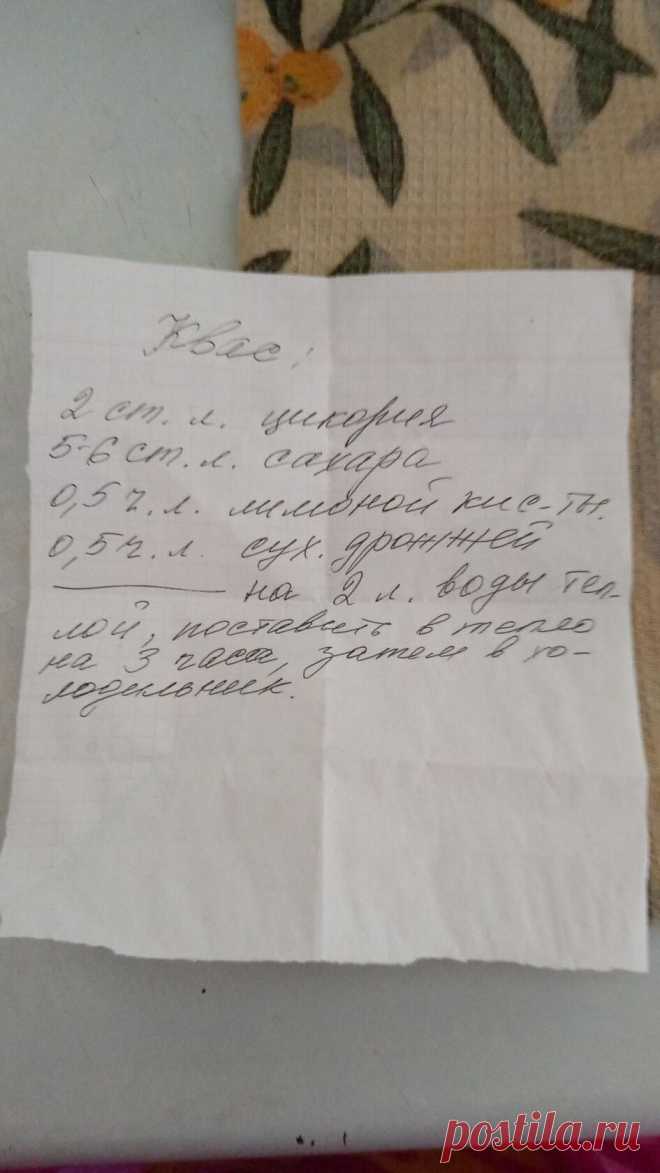 Квас:
2 ст. л. цикория
5-6 ст. л. сахара
0,5 ч. л. лимоной кис-ты.
0,5 ч. л. сух. дрожжей
на 2 л. воды теп-
лой, поставить в тепло
на 3 часа, затем в хо-
лодильник.
postila.ru